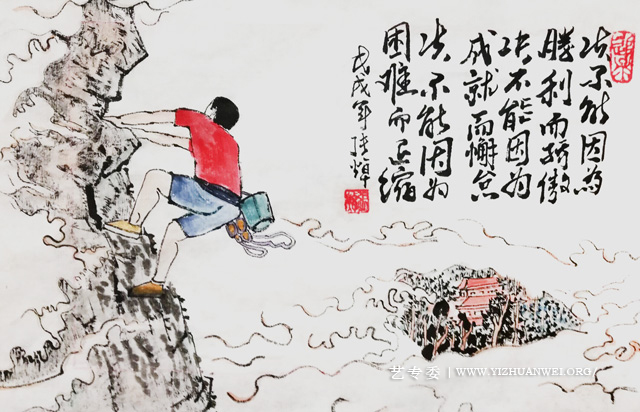 决不能因為
勝利而骄傲
决不能因为
成就而懈怠
决不能因为
困難而退缩
戊戌年
艺专委 | WWW.YIZHUANWEI.ORG